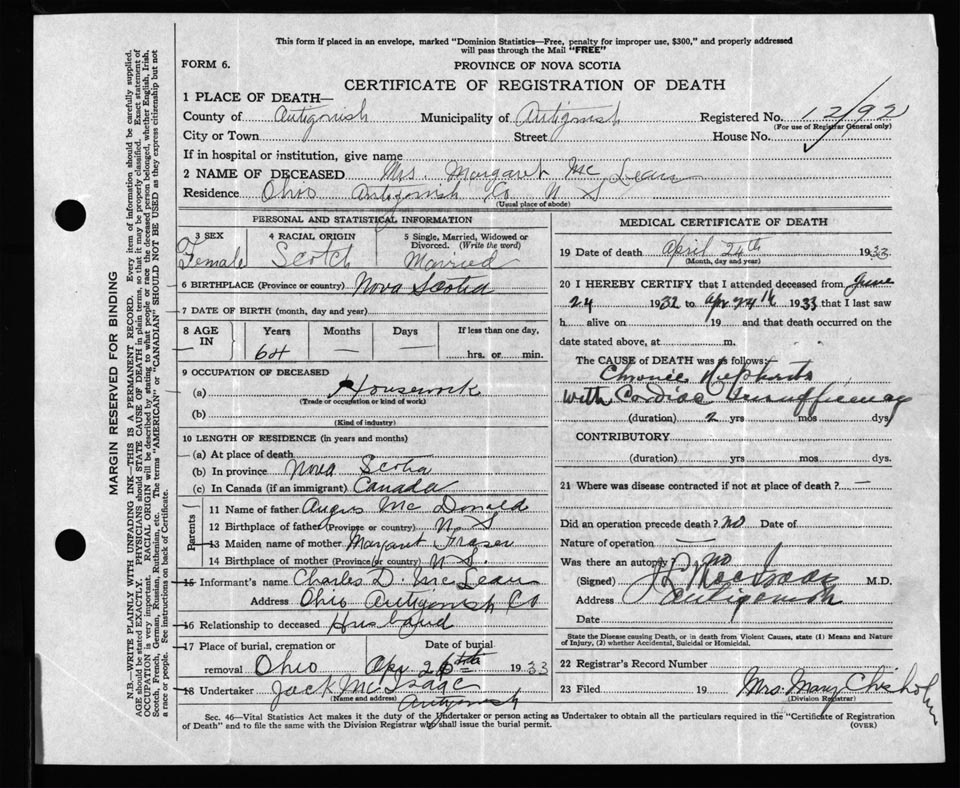 This form if placed in an envelope, marked "Dominion Statistics—Free, penalty for improper use, $300," and properly addressed
will pass through the Mail "FREE"
FORM 6.
PROVINCE OF NOVA SCOTIA
CERTIFICATE OF REGISTRATION OF DEATH
1 PLACE OF DEATH—
County of Antigonish Municipality of Antigonish Registered No. 12/92
(For use of Registrar General only)
City or Town Street House No.
If in hospital or institution, give name
2 NAME OF DECEASED Mrs. Margaret Mc Lean
Residence Ohio Antigonish Co N S
(Usual place of abode)
PERSONAL AND STATISTICAL INFORMATION
3 SEX 4 RACIAL ORIGIN 5 Single, Married, Widowed or Divorced. (Write the word)
Female Scotch Married
6 BIRTHPLACE (Province or country) Nova Scotia
7 DATE OF BIRTH (month, day and year)
8 AGE IN Years Months Days If less than one day,
64 — — hrs. or min.
9 OCCUPATION OF DECEASED
(a) Housework
(Trade or occupation or kind of work)
(b)
(Kind of industry)
10 LENGTH OF RESIDENCE (in years and months)
(a) At place of death
(b) In province Nova Scotia
(c) In Canada (if an immigrant) Canada
Parents
11 Name of father Angus Mc Donald
12 Birthplace of father (Province or country) N. S
13 Maiden name of mother Margaret Fraser
14 Birthplace of mother (Province or country) N S.
15 Informant's name Charles D. McLean
Address Ohio Antigonish Co
16 Relationship to deceased Husband
17 Place of burial, cremation or removal Ohio Date of burial Apr 26th 1933
18 Undertaker Jack McIsaac
(Name and address) Antigonish
MEDICAL CERTIFICATE OF DEATH
19 Date of death April 24th 1933
(Month, day and year)
20 I HEREBY CERTIFY that I attended deceased from June
24 1932 to Apr 24th 1933 that I last saw
h alive on 19 and that death occurred on the
date stated above, at m.
The CAUSE of DEATH was as follows:
Chronic Nephritis
with Cardiac Insufficiency
(duration) 2 yrs mos dys
CONTRIBUTORY
(duration) yrs mos dys.
21 Where was disease contracted if not at place of death? —
Did an operation precede death? no Date of
Nature of operation —
Was there an autopsy? no
(Signed) M.D.
Address Antigonish
Date
State the Disease causing Death, or in death from Violent Causes, state (1) Means and Nature
of Injury, (2) whether Accidental, Suicidal or Homicidal.
22 Registrar's Record Number
23 Filed 19 Mrs. Mary Chisholm
(Division Registrar)
Sec. 46—Vital Statistics Act makes it the duty of the Undertaker or person acting as Undertaker to obtain all the particulars required in the "Certificate of Registration
of Death" and to file the same with the Division Registrar who shall issue the burial permit. (OVER)
MARGIN RESERVED FOR BINDING
N.B.—WRITE PLAINLY WITH UNFADING INK—THIS IS A PERMANENT RECORD. Every item of information should be carefully supplied.
AGE should be stated EXACTLY. PHYSICIANS should STATE CAUSE OF DEATH in plain terms, so that it may be properly classified. Exact statement of
OCCUPATION is very important. RACIAL ORIGIN will be described by stating to what people or race the deceased person belonged, whether English, Irish,
Scotch, French, German, Russian, Ruthenian, etc. The terms "AMERICAN" or "CANADIAN" SHOULD NOT BE USED as they express citizenship but not
a race or people. See instructions on back of Certificate.